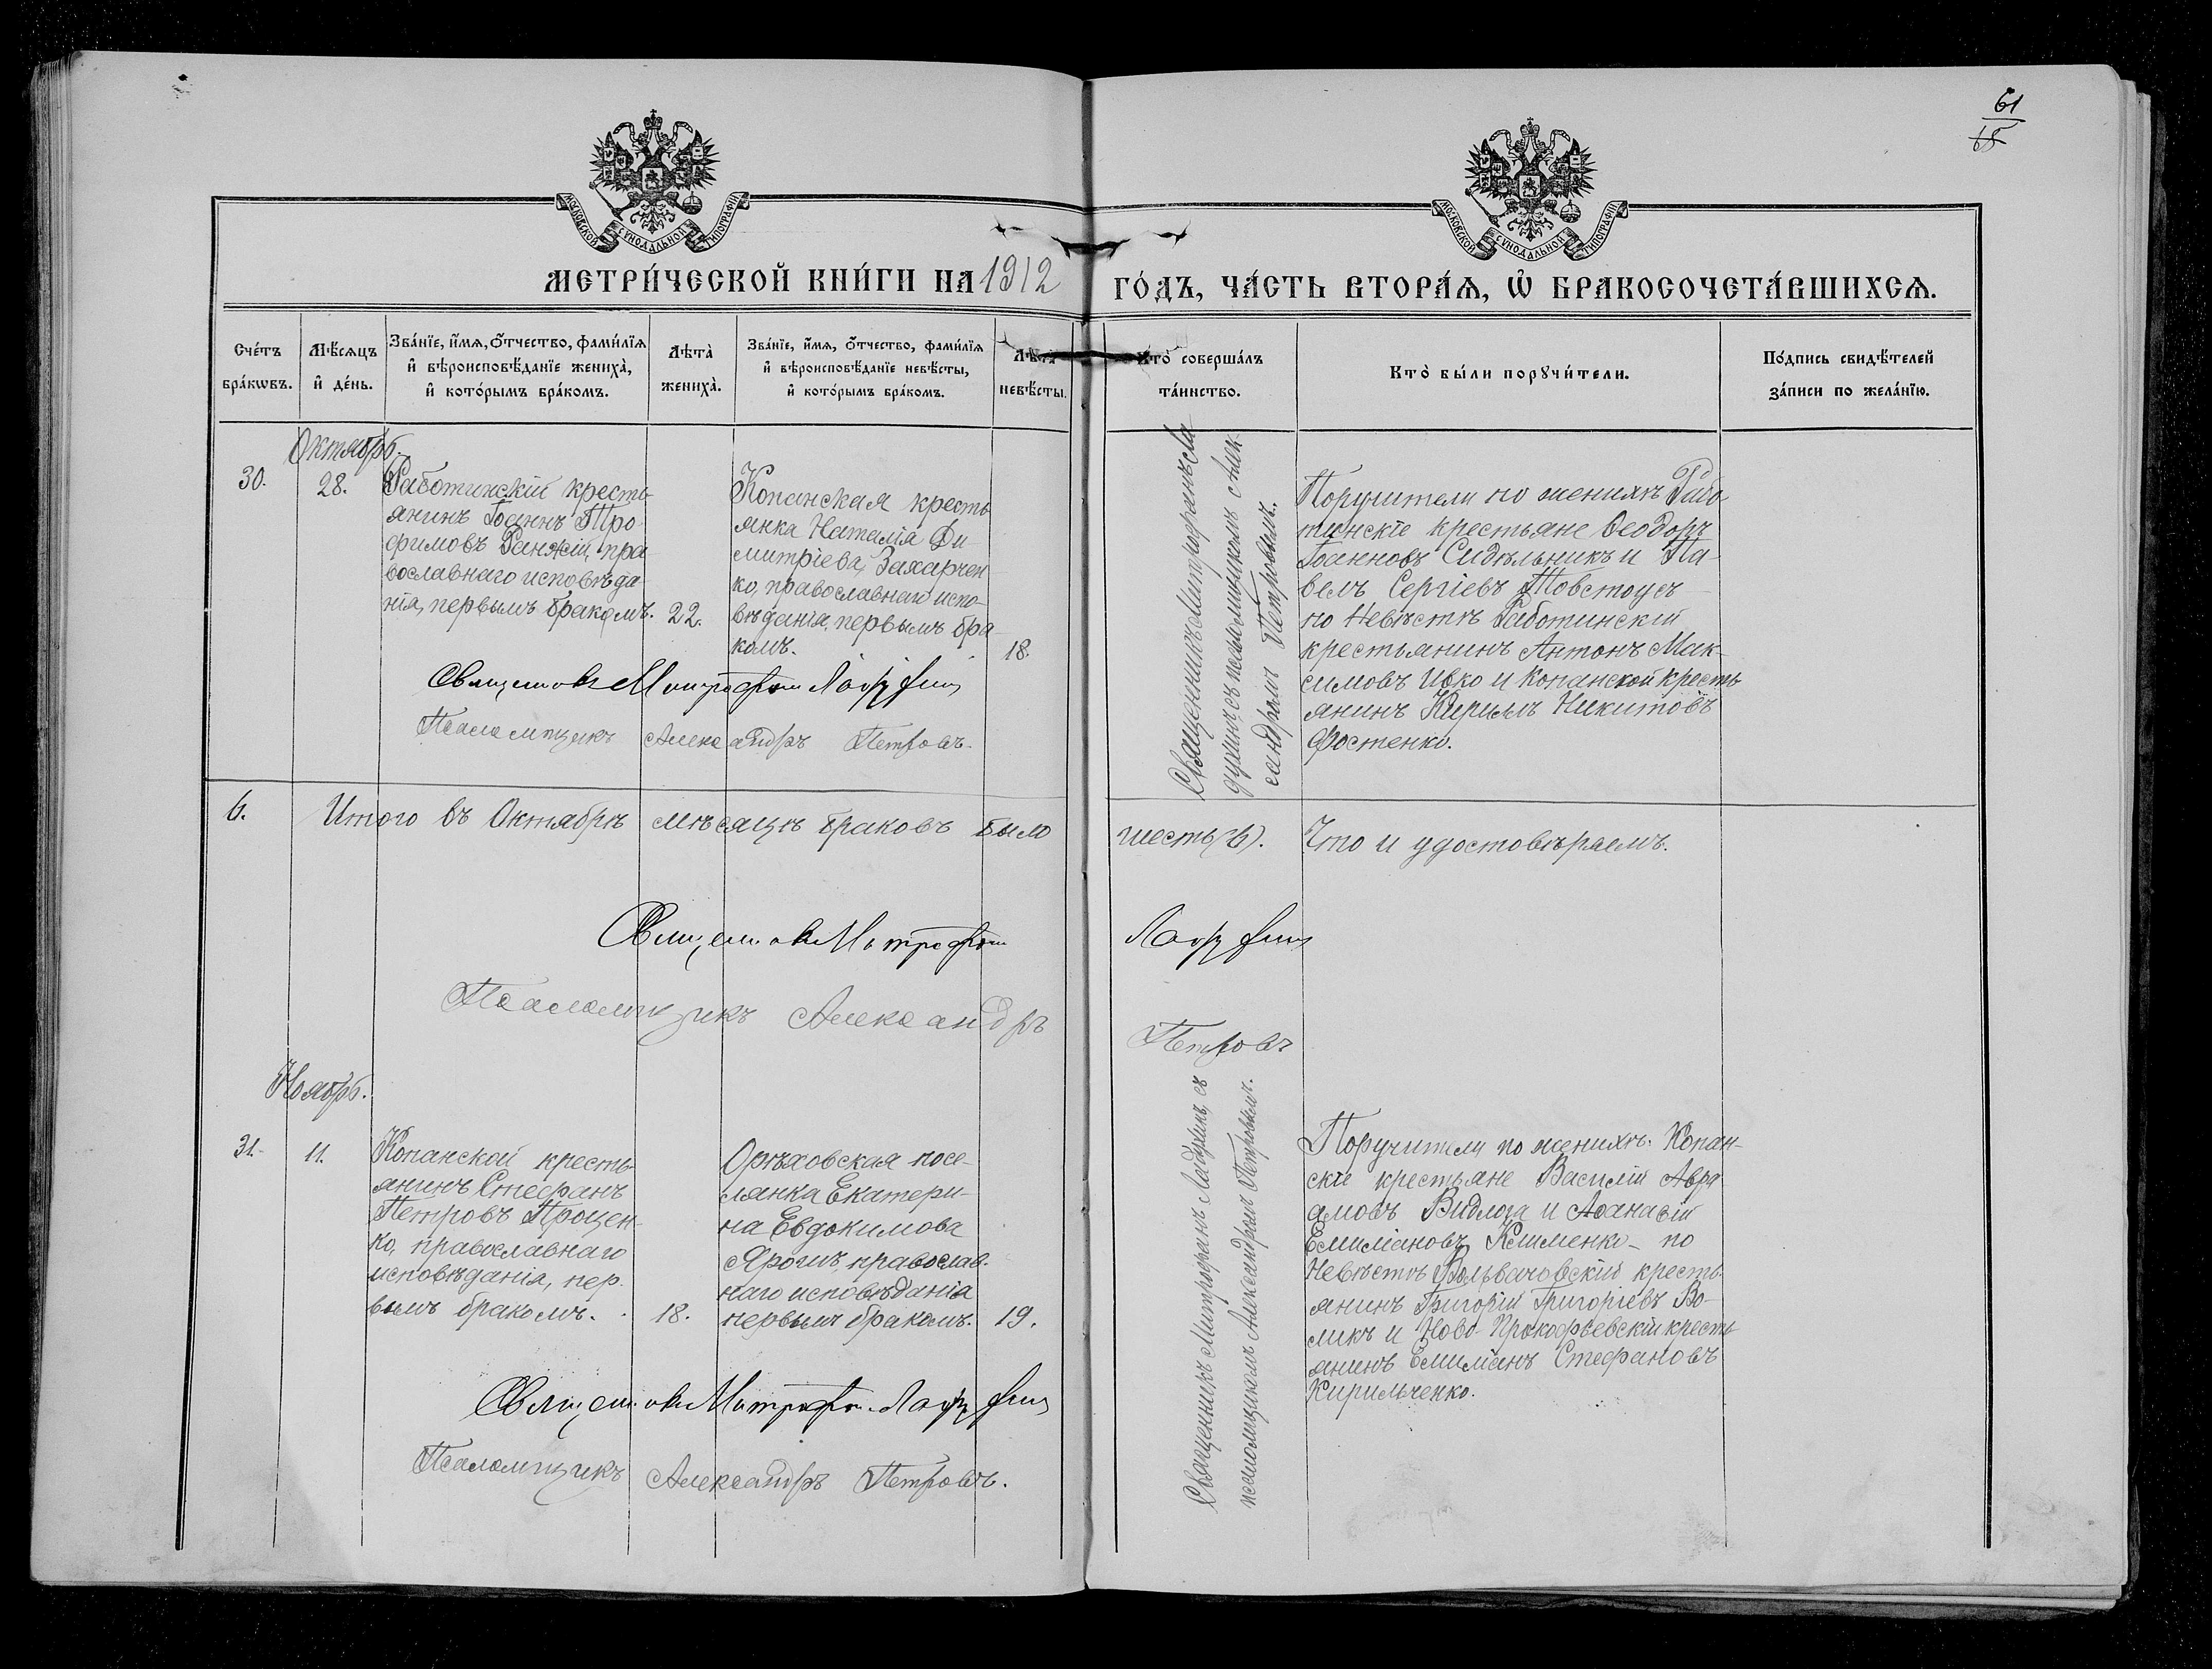 61
15
МОСКОВСКОЙ СѴНОДАЛЬНОЙ ТИПОГРАФІИ
МОСКОВСКОЙ СѴНОДАЛЬНОЙ ТИПОГРАФІИ
МЕТРИ́ЧЕСКОЙ КНИ́ГИ НА 1912 ГО́ДЪ, ЧА́СТЬ ВТОРА́Ѧ, Ѡ҆ БРАКОСОЧЕТА́ВШИХСѦ.
Сче́тъ
бра́кѡвъ.
Мѣ́сѧцъ
и҆ де́нь.
Зва́нїе, и҆́мѧ, ѻ҆́тчество, фами́лїѧ
и҆ вѣроисповѣ́данїе жениха̀,
и҆ кото́рымъ бра́комъ.
Лѣта̀
жениха̀.
Зва́нїе, и҆́мѧ, ѻ҆́тчество, фами́лїѧ
и҆ вѣроисповѣ́данїе невѣ́сты,
и҆ кото́рымъ бра́комъ.
Лѣта̀
невѣ́сты.
Кто̀ соверша́лъ
та́инство.
Кто̀ бы́ли порꙋчи́тели.
По́дпись свидѣ́телей
за́писи по жела́нїю.
Октябрь.
30.
28.
Работинскій кресть-
янинъ Іоаннъ Тро-
фимовъ Ганжій, пра-
вославнаго исповѣда-
нія, первымъ бракомъ.
22.
Копанская кресть-
янка Наталія Ди-
митріева Захарчен-
ко, православнаго испо-
вѣданія, первымъ бра-
комъ.
18.
Священникъ Митрофанъ
псаломщикомъ Алек-
сандромъ Петровымъ.
Поручители по женихѣ Рабо-
тинскіе крестьяне Ѳеодоръ
Іоанновъ Сидѣльникъ и Па-
велъ Сергіевъ Товстоусъ
по Невѣстѣ Работинскій
крестьянинъ Антонъ Мак-
симовъ Ивко и Копанской кресть-
янинъ Кириллъ Никитовъ
Фостенко.
Священникъ Митрофанъ
Псаломщикъ Александръ Петровъ.
6.
Итого въ Октябрѣ мѣсяцѣ браковъ было шесть (6). Что и удостовѣряемъ.
Священникъ Митрофанъ
Псаломщикъ Александръ Петровъ
Ноябрь.
31.
11.
Копанской кресть-
янинъ Стефанъ
Петровъ Процен-
ко, православнаго
исповѣданія, пер-
вымъ бракомъ.
18.
Орѣховская посе-
лянка Екатери-
на Евдокимова
Ярошъ, православ-
наго исповѣданія
первымъ бракомъ.
19.
Священникъ Митрофанъ съ
псаломщикомъ Александромъ Петровымъ.
Поручители по женихѣ: Копан-
скіе крестьяне Василій Авра-
амовъ Видлога и Аѳанасій
Емиліановъ Клименко - по
Невѣстѣ кресть-
янинъ Григорій Григоріевъ Во-
ликъ и Ново-Прокофьевскій кресть-
янинъ Емиліанъ Стефановъ
Кирильченко.
Священникъ Митрофанъ
Псаломщикъ Александръ Петровъ.